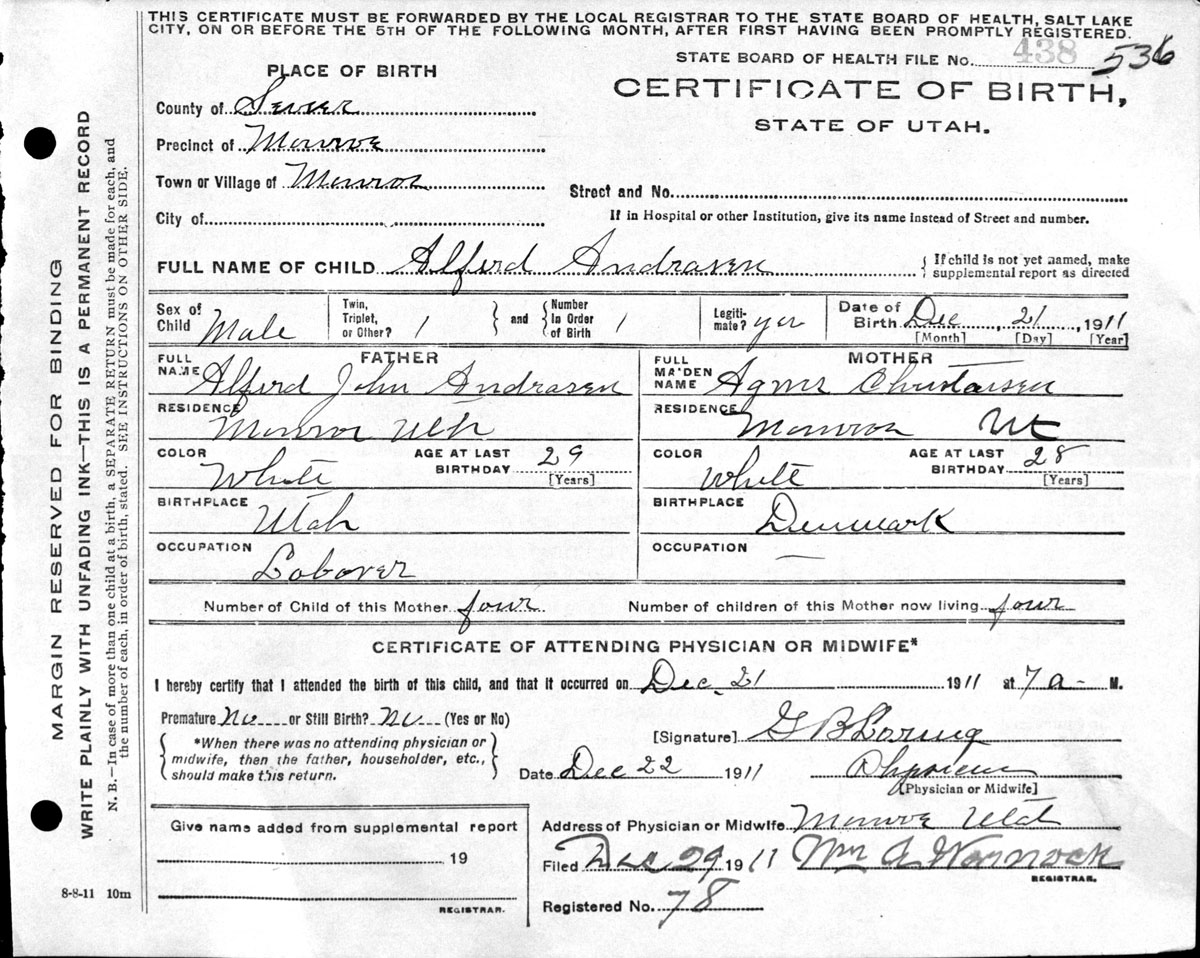 THIS CERTIFICATE MUST BE FORWARDED BY THE LOCAL REGISTRAR TO THE STATE BOARD OF HEALTH, SALT LAKE
CITY, ON OR BEFORE THE 5TH OF THE FOLLOWING MONTH, AFTER FIRST HAVING BEEN PROMPTLY REGISTERED.
STATE BOARD OF HEALTH FILE No. 438 536
PLACE OF BIRTH
CERTIFICATE OF BIRTH,
STATE OF UTAH.
County of Sevier
Precinct of Monroe
Town or Village of Monroe
Street and No.
City of
If in Hospital or other Institution, give its name instead of Street and number.
FULL NAME OF CHILD Alferd Andrasen { If child is not yet named, make
supplemental report as directed
Sex of Child Male
Twin, Triplet, or Other? 1 } and { Number In Order of Birth 1
Legiti-mate? yes
Date of Birth Dec, 21, 1911
[Month] [Day] [Year]
FATHER
FULL NAME Alferd John Andrasen
RESIDENCE
Monroe Utah
COLOR White AGE AT LAST BIRTHDAY 29 [Years]
BIRTHPLACE
Utah
OCCUPATION
Laborer
MOTHER
FULL MAIDEN NAME Agnes Christensen
RESIDENCE
Monroe Ut
COLOR White AGE AT LAST BIRTHDAY 28 [Years]
BIRTHPLACE
Denmark
OCCUPATION
—
Number of Child of this Mother four Number of children of this Mother now living four
CERTIFICATE OF ATTENDING PHYSICIAN OR MIDWIFE*
I hereby certify that I attended the birth of this child, and that it occurred on Dec. 21 1911 at 7 a- M.
Premature No or Still Birth? No (Yes or No)
*When there was no attending physician or
midwife, then the father, householder, etc.,
should make this return.
[Signature] G B Loring
Date Dec 22 1911 Physician
[Physician or Midwife]
Give name added from supplemental report
19
REGISTRAR.
Address of Physician or Midwife Monroe Utah
Filed Dec 29 1911 Wm A Warnock
REGISTRAR.
Registered No. 78
8-8-11 10m
MARGIN RESERVED FOR BINDING
WRITE PLAINLY WITH UNFADING INK—THIS IS A PERMANENT RECORD
N. B.—In case of more than one child at a birth, a SEPARATE RETURN must be made for each, and
the number of each, in order of birth, stated. SEE INSTRUCTIONS ON OTHER SIDE.